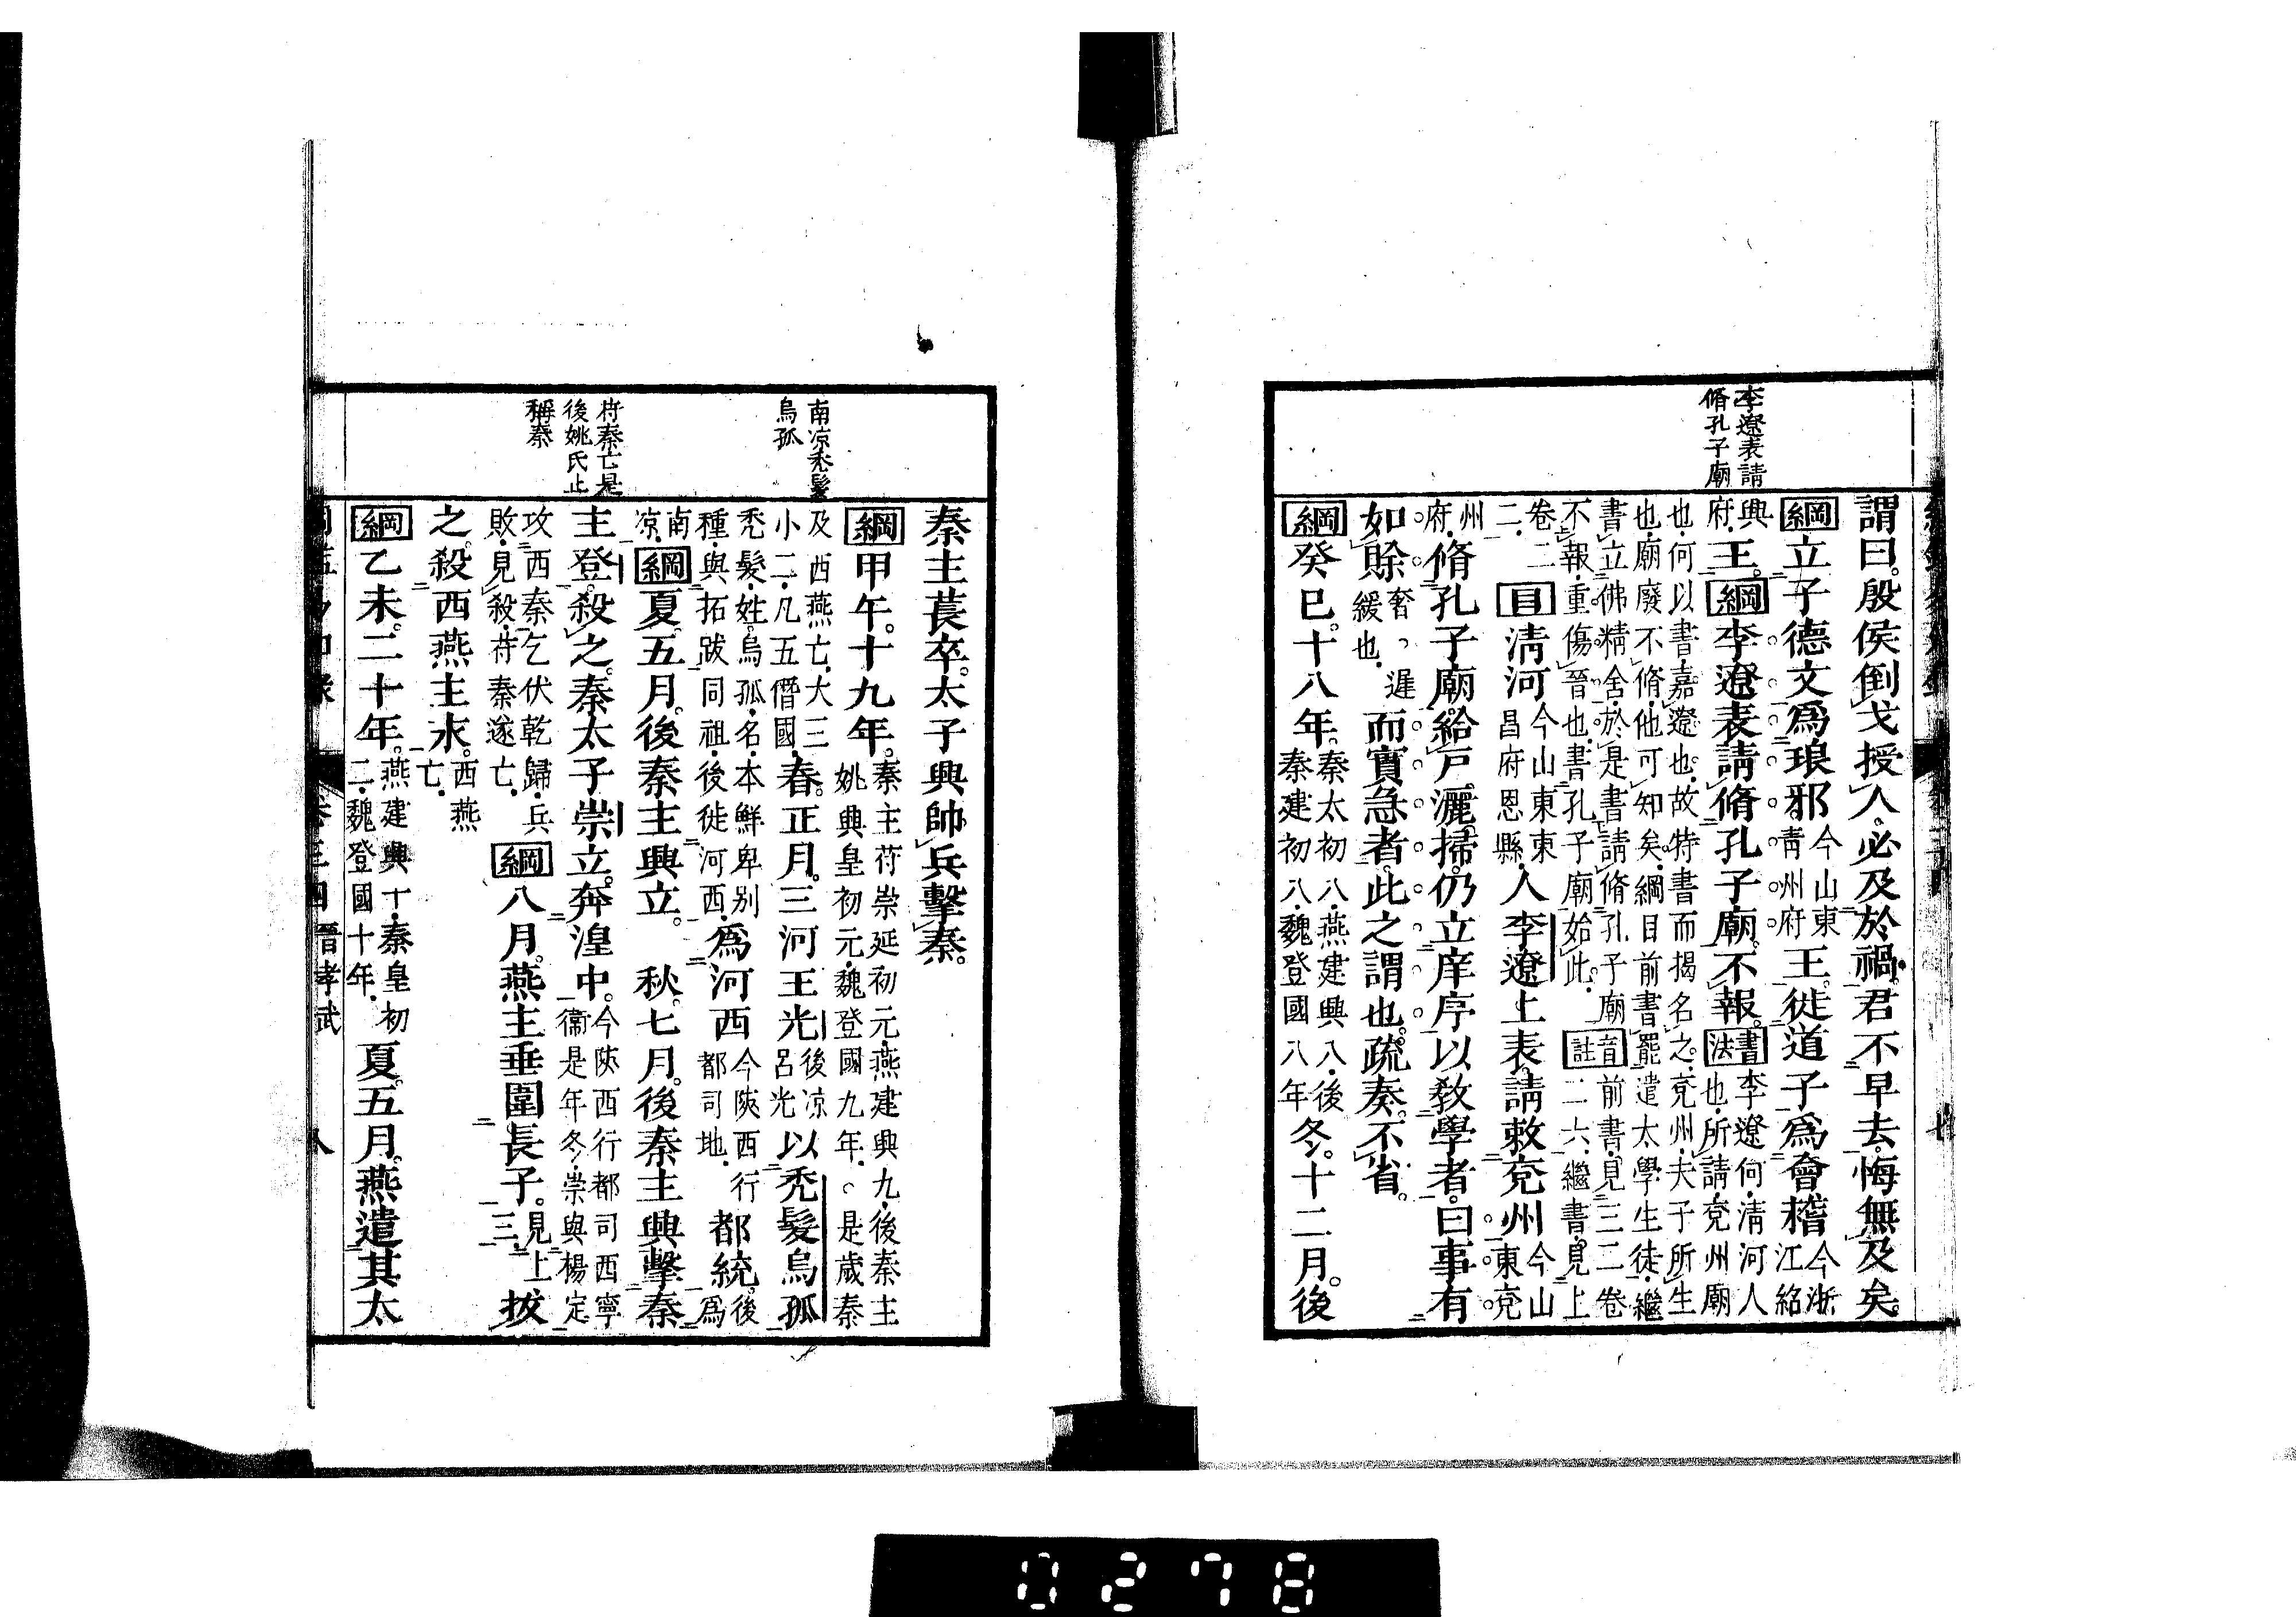 李遼表請
脩孔子廟
謂曰。殷侯倒戈授人。必及於禍。君不早去。悔無及矣。
綱立子德文爲琅邪。今山東青州府王。徙道子爲會稽今浙江紹
興府。王。綱李遼表請脩孔子廟。不報。書法李遼何清河人也。所請兗州廟
也。何以書。嘉遼也。故特書而揭名之。兗州。夫子所生也。廟廢不脩。他可知矣。綱目前書罷遣太學生徒。繼
書立佛精舍。於是書請脩孔子廟不報。重傷晉也。書孔子廟始此。音註前書。見三二卷二六。繼書。見上
卷二二。目清河今山東東昌府恩縣。人李遼上表。請敕兗州今山東兗
州府。脩孔子廟。給戶灑掃。仍立庠序以敎學者。曰。事有
如賒奢、遲緩也。而實急者。此之謂也。疏奏。不省。
綱癸巳。十八年。秦太初八。燕建興八。後秦建初八。魏登國八年冬。十二月。後
南凉禿髮
烏孤
苻秦亡是
後姚氏止
稱秦
秦主萇卒。太子興帥兵擊秦。
綱甲午。十九年。秦主苻崇延初元。燕建興九。後秦主姚興皇初元。魏登國九年。○是歲秦
及西燕亡。大三小二。凡五僭國。春。正月。三河王光後凉呂光以禿髮烏孤
禿髮。姓。烏孤。名。本鮮卑别種。與拓跋同祖。後徙河西。爲河西今陝西行都司地。都統。後爲
南凉。綱夏。五月。後秦主興立。　秋。七月。後秦主興擊秦
主登。殺之。秦太子崇立。奔湟中。今陝西行都司西寧衞是年冬。崇與楊定
攻西秦。乞伏乾歸。兵敗。見殺。苻秦遂亡。綱八月。燕主垂圍長子。見上三。拔
之。殺西燕主永。西燕亡。
綱乙未。二十年。燕建興十。秦皇初二。魏登國十年。夏。五月。燕遣其太
晉孝武
八
0278